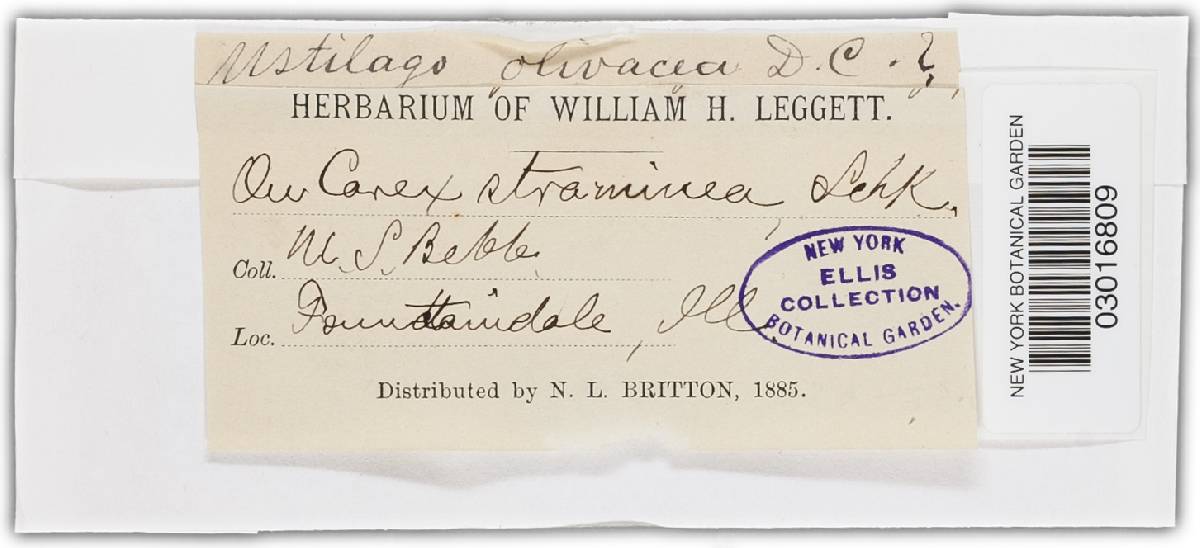 Ustilago olivacea D.C. ?
HERBARIUM OF WILLIAM H. LEGGETT.
On Carex straminea, Schk.
Coll. M. S. Bebb.
Loc. Fountaindale, Ill.
Distributed by N. L. BRITTON, 1885.
NEW YORK
ELLIS
COLLECTION
BOTANICAL GARDEN.
NEW YORK BOTANICAL GARDEN
03016809